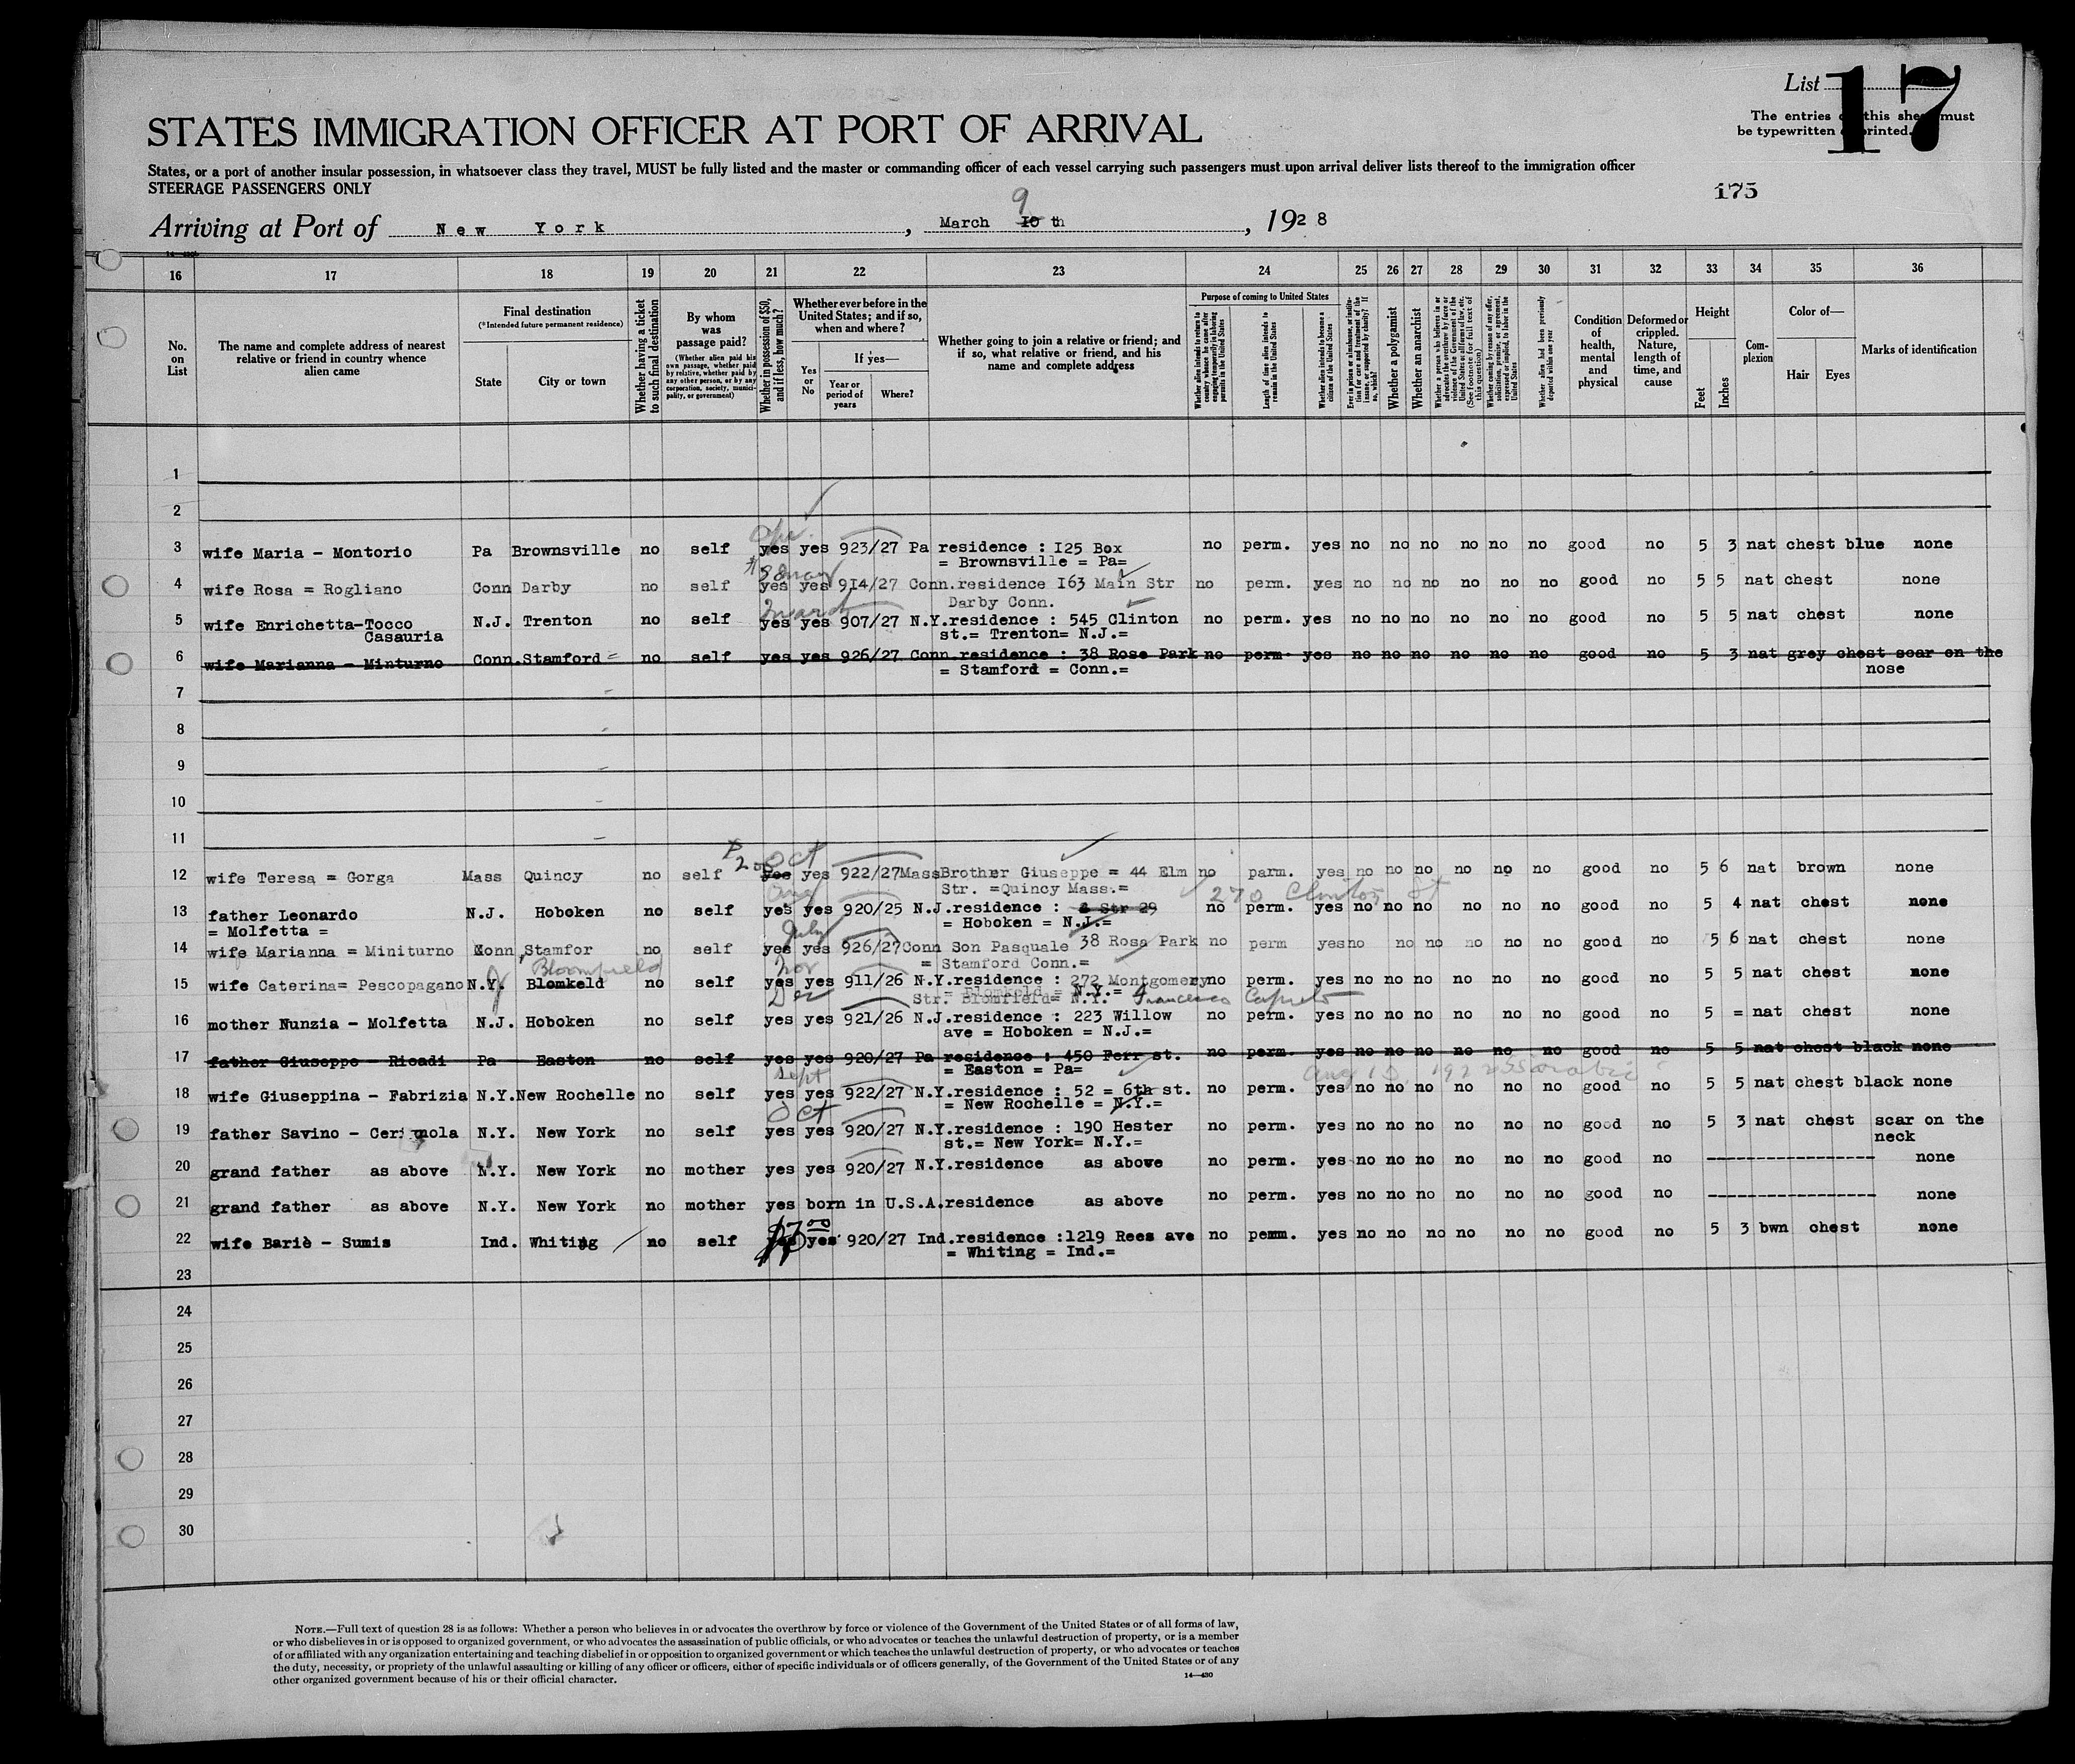 List 17
The entries on this sheet must
be typewritten or printed.
STATES IMMIGRATION OFFICER AT PORT OF ARRIVAL
States, or a port of another insular possession, in whatsoever class they travel, MUST be fully listed and the master or commanding officer of each vessel carrying such passengers must upon arrival deliver lists thereof to the immigration officer
STEERAGE PASSENGERS ONLY
175
9
Arriving at Port of New York, March 10 th, 1928
16 17 18 19 20 21 22 23 24 25 26 27 28 29 30 31 32 33 34 35 36
No. on List
The name and complete address of nearest relative or friend in country whence alien came
Final destination
(*Intended future permanent residence)
State
City or town
Whether having a ticket to such final destination
By whom was passage paid?
(Whether alien paid his own passage, whether paid by relative, whether paid by any other person, or by any corporation, society, municipality, or government)
Whether in possession of $50, and if less, how much?
Whether ever before in the United States; and if so, when and where?
Yes or No
If yes—
Year or period of years
Where?
Whether going to join a relative or friend; and if so, what relative or friend, and his name and complete address
Purpose of coming to United States
Whether alien intends to return to country whence he came after engaging temporarily in laboring pursuits in the United States
Length of time alien intends to remain in the United States
Whether alien intends to become a citizen of the United States
Ever in prison or almshouse, or institution for care and treatment of the insane, or supported by charity? If so, which?
Whether a polygamist
Whether an anarchist
Whether a person who believes in or advocates the overthrow by force or violence of the Government of the United States or all forms of law, etc. (See footnote for full text of this question)
Whether coming by reason of any offer, solicitation, promise, or agreement, expressed or implied, to labor in the United States
Whether alien had been previously deported within one year
Condition of health, mental and physical
Deformed or crippled. Nature, length of time, and cause
Height
Feet
Inches
Complexion
Color of—
Hair
Eyes
Marks of identification
1
2
3 wife Maria - Montorio Pa Brownsville no self yes yes 923/27 Pa residence : I25 Box no perm. yes no no no no no no good no 5 3 nat chest blue none
= Brownsville = Pa=
4 wife Rosa = Rogliano Conn Darby no self yes yes 9I4/27 Conn.residence I63 Main Str no perm. yes no no no no no no good no 5 5 nat chest none
Darby Conn.
March
5 wife Enrichetta-Tocco N.J. Trenton no self yes yes 907/27 N.Y.residence : 545 Clinton no perm. yes no no no no no no good no 5 5 nat chest none
Casauria st.= Trenton= N.J.=
6 wife Marianna - Minturno Conn.Stamford= no self yes yes 926/27 Conn.residence : 38 Rose Park no perm. yes no no no no no no good no 5 3 nat grey chest scar on the
= Stamford = Conn.= nose
7
8
9
10
11
Oct
12 wife Teresa = Gorga Mass Quincy no self yes yes 922/27MassBrother Giuseppe = 44 Elm no parm. yes no no no no no no good no 5 6 nat brown none
Str. =Quincy Mass.=
Aug 270 Clinton St
13 father Leonardo N.J. Hoboken no self yes yes 920/25 N.J.residence : Str 29 no perm. yes no no no no no no good no 5 4 nat chest none
= Molfetta = = Hoboken = N.J.=
July
14 wife Marianna = Miniturno Conn,Stamfor no self yes yes 926/27Conn Son Pasquale 38 Rosa Park no perm yes no no no no no no good no 5 6 nat chest none
= Stamford Conn.=
J Bloomfield Nov
15 wife Caterina= Pescopagano N.Y. Blomkeld no self yes yes 911/26 N.Y.residence : 272 Montgomery no perm. yes no no no no no no good no 5 5 nat chest none
Str. Blomfield= N.Y.
Dec Francesco
16 mother Nunzia - Molfetta N.J. Hoboken no self yes yes 921/26 N.J.residence : 223 Willow no perm. yes no no no no no no good no 5 = nat chest none
ave = Hoboken = N.J.=
17 father Giuseppe - Ricadi Pa Easton no self yes yes 920/27 Pa residence : 450 Ferr st. no perm. yes no no no no no no good no 5 5 nat chest black none
= Easton = Pa=
Sept
18 wife Giuseppina - Fabrizia N.Y.New Rochelle no self yes yes 922/27 N.Y.residence : 52 = 6th st. no perm. yes no no no no no no good no 5 5 nat chest black none
= New Rochelle = N.Y.=
Oct
19 father Savino - Cerignola N.Y. New York no self yes yes 920/27 N.Y.residence : 190 Hester no perm. yes no no no no no no good no 5 3 nat chest scar on the
st.= New York= N.Y.= neck
20 grand father as above N.Y. New York no mother yes yes 920/27 N.Y.residence as above no perm. yes no no no no no no good no ----------------- none
21 grand father as above N.Y. New York no mother yes born in U.S.A.residence as above no perm. yes no no no no no no good no ----------------- none
22 wife Bariè - Sumis Ind. Whiting no self yes yes 920/27 Ind.residence :1219 Rees ave no pemm. yes no no no no no no good no 5 3 bwn chest none
= Whiting = Ind.=
23
24
25
26
27
28
29
30
NOTE.—Full text of question 28 is as follows: Whether a person who believes in or advocates the overthrow by force or violence of the Government of the United States or of all forms of law,
or who disbelieves in or is opposed to organized government, or who advocates the assassination of public officials, or who advocates or teaches the unlawful destruction of property, or is a member
of or affiliated with any organization entertaining and teaching disbelief in or opposition to organized government or which teaches the unlawful destruction of property, or who advocates or teaches
the duty, necessity, or propriety of the unlawful assaulting or killing of any officer or officers, either of specific individuals or of officers generally, of the Government of the United States or of any
other organized government because of his or their official character.
14—430